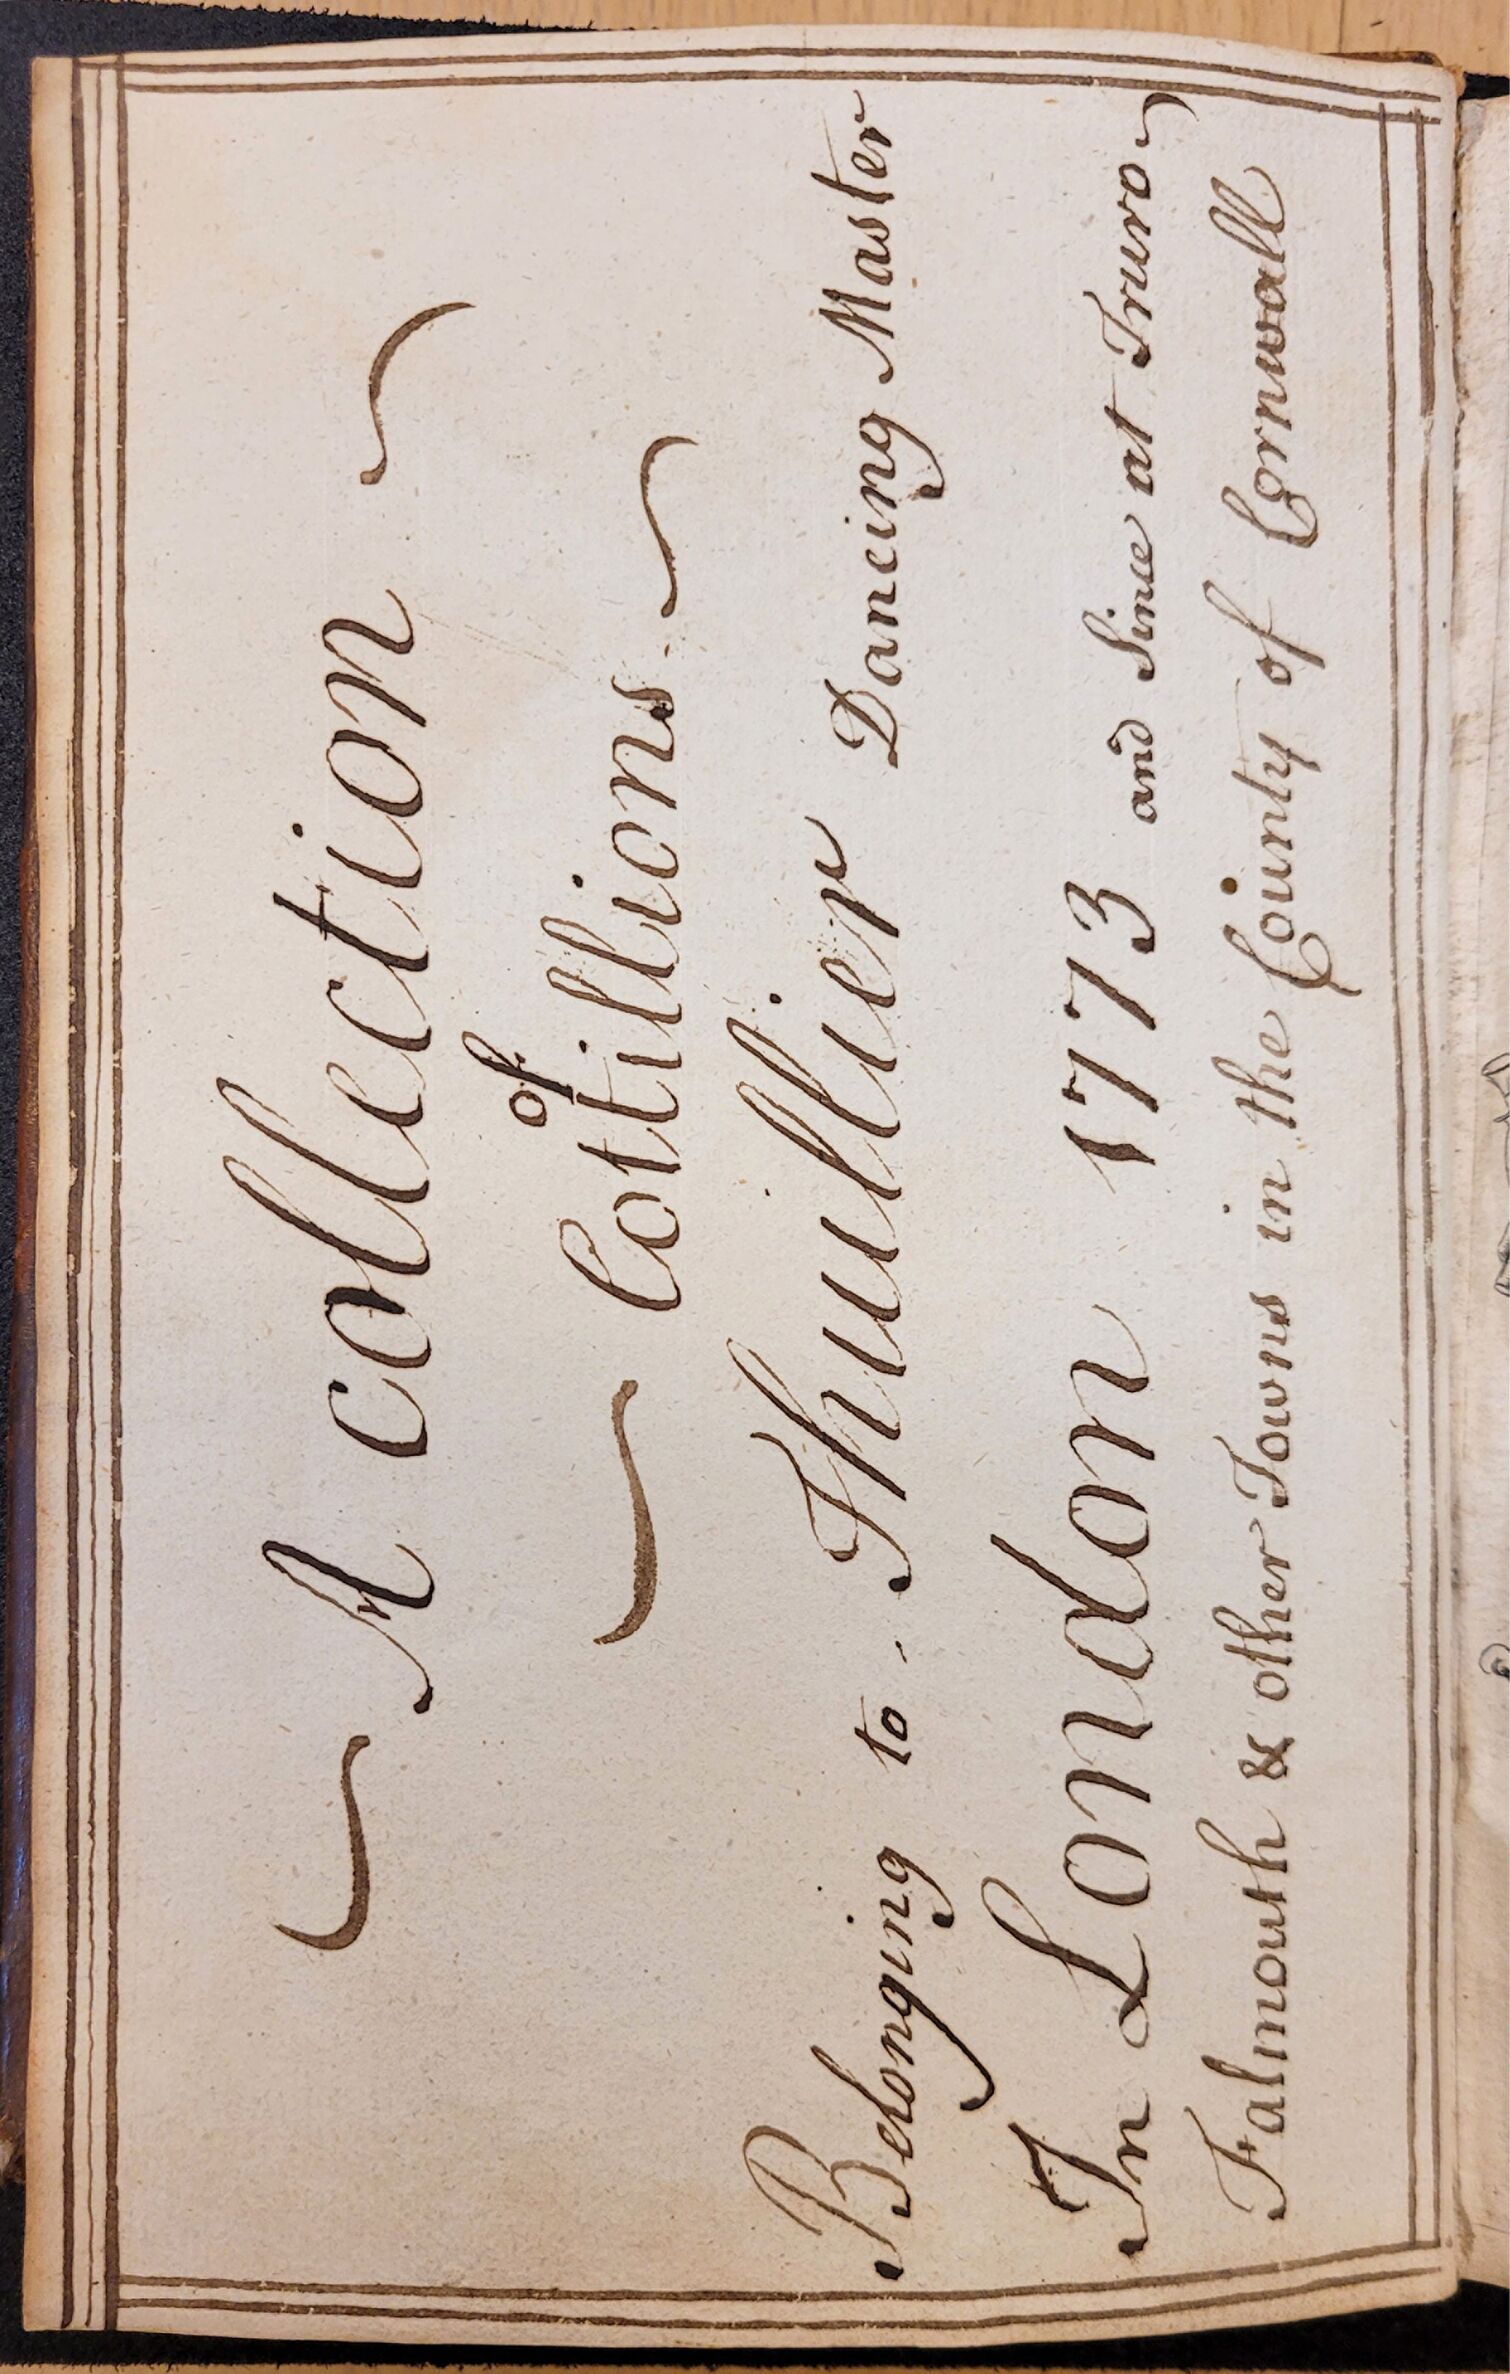 A collection
of
Cotillions
Belonging to Thuillier Dancing Master
In London 1773 and Since at Truro
Falmouth & other Towns in the County of Cornwall